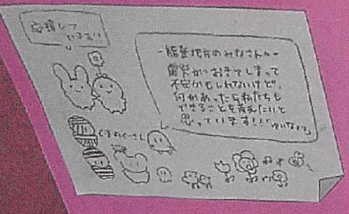 応援して
います!!
-能登地方のみなさんへ-
震災がおきてしまって
不安かもしれないけど、
何かあったら私たちも
できることを考えたいと
思っています!!